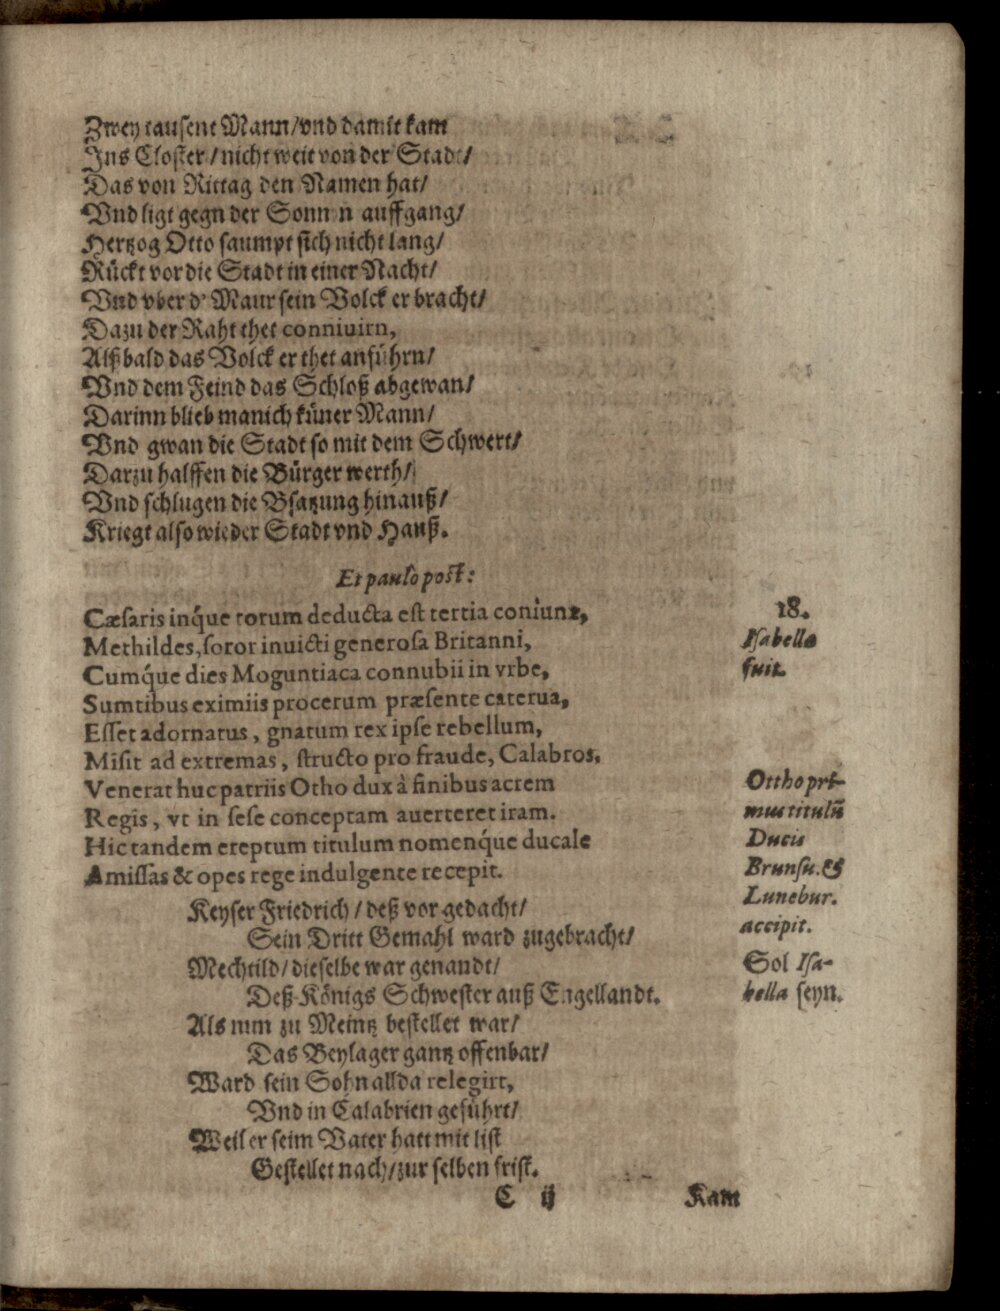 Zwey tausent Mann/vnd damit kam
Ins Closter/nicht weit von der Stadt/
Das von Rittag den Namen hat/
Vnd ligt gegn der Sonn n auffgang/
Hertzog Otto saumpt sich nicht lang/
Rückt vor die Stadt in einer Nacht/
Vnd vber d' Maur sein Volck er bracht/
Dazu der Raht thet conniuirn,
Alßbald das Volck er thet anführn/
Vnd dem Feind das Schloß abgewan/
Darinn blieb manich küner Mann/
Vnd gwan die Stadt so mit dem Schwert/
Darzu halffen die Bürger werth/
Vnd schlugen die Bsatzung hinauß/
Kriegt also wieder Stadt vnd Hauß.
Et paulò post:
Cæsaris inq́ue torum deducta est tertia coniunx, 18.
Methildes, soror inuicti generosa Britanni, Isabella
Cumq́ue dies Moguntiaca connubii in vrbe, fuit.
Sumtibus eximiis procerum præsente caterua,
Esset adornatus, gnatum rex ipse rebellum,
Misit ad extremas, structo pro fraude, Calabros,
Venerat huc patriis Otho dux à finibus acrem Ottho pri-
Regis, vt in sese conceptam auerteret iram. mus titulũ
Hic tandem ereptum titulum nomenq́ue ducale Ducis
Amissas & opes rege indulgente recepit. Brunsu. &
Lunebur.
accipit.
Keyser Friedrich/deß vor gedacht/
Sein Dritt Gemahl ward zugebracht/
Mechtild/dieselbe war genandt/ Sol Isa-
Deß Königs Schwester auß Engellandt. bella seyn.
Als nun zu Meintz bestellet war/
Das Beylager gantz offenbar/
Ward sein Sohn allda relegirt,
Vnd in Calabrien geführt/
Weil er seim Vater hatt mit list
Gestellet nach/zur selben frist.
C ij Kam